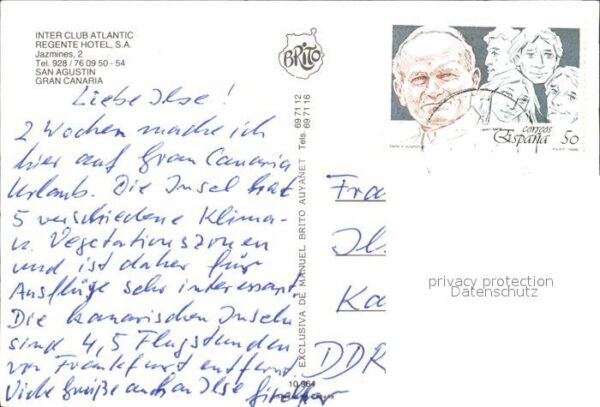 INTER CLUB ATLANTIC
REGENTE HOTEL, S.A.
Jazmines, 2
Tel. 928 / 76 09 50 - 54
SAN AGUSTIN
GRAN CANARIA
Liebe Ilse!
2 Wochen mache ich
hier auf Gran Canaria
Urlaub. Die Insel hat
5 verschiedene Klima-
u. Vegetationszonen
und ist daher für
Ausflüge sehr interessant.
Die kanarischen Inseln
sind 4,5 Flugstunden
von Frankfurt entfernt
Viele Grüße auch an Ilse
BRITO
EXCLUSIVA DE MANUEL BRITO AUYANET Tels. 69 71 12
69 71 16
10.964
correos
España 50
Fra
Il
Ka
DDR
privacy protection
Datenschutz